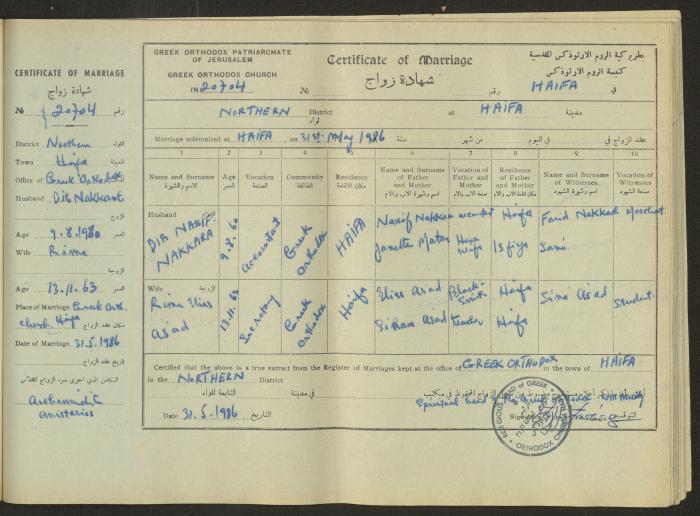 CERTIFICATE OF MARRIAGE
شهادة زواج
№ 20704 رقم
District Northern لواء
Town Haifa المدينة
Office of Greek Orthodox
Husband Dib Nakkara
الزوج
Age 9.8.1960 العمر
Wife Rima
الزوجة
Age 13.11.63 العمر
Place of Marriage Greek Orth.
church Haifa مكان عقد الزواج
Date of Marriage 31.5.1986
تاريخ عقد الزواج
Archimandrite
GREEK ORTHODOX PATRIARCHATE
OF JERUSALEM
GREEK ORTHODOX CHURCH
IN 20704
Certificate of Marriage
شهادة زواج
№ رقم
بطوير كية الروم الارثوذكس المقدسية
كنيسة الروم الارثوذكس
HAIFA في
NORTHERN District لواء at HAIFA مدينة
Marriage solemnized at HAIFA, on 31st May 1986 سنة من شهر في اليوم عقد الزواج في
1 2 3 4 5 6 7 8 9 10
Name and Surname الاسم والشهرة
Age العمر
Vocation الصنعة
Community الطائفة
Residence مكان الاقامة
Name and Surname of Father and Mother اسم وشهرة الاب والام
Vocation of Father and Mother صنعة الاب والام
Residence of Father and Mother مكان اقامة الاب والام
Name and Surname of Witnesses اسم وشهرة الشهود
Vocation of Witnesses صنعة الشهود
Husband الزوج
DIB NASIF NAKKARA
9.8.60
Accountant
Greek Orthodox
HAIFA
Nasif Nakkara accountant Haifa Farid Nakkara Merchant
Janette Matar House wife Isfiya Sami
Wife الزوجة
Rima Elias Asad
13.11.63
Secretary
Greek Orthodox
Haifa
Elias Asad Black-smith Haifa Sima Asad student.
Siham Asad teacher Haifa
Certified that the above is a true extract from the Register of Marriages kept at the office of GREEK ORTHODOX in the town of HAIFA
in the NORTHERN District التابعة للواء في مدينة
Spiritual head of the Greek Orthodox community
Date 31.5.1986 التاريخ
Signature التوقيع
RELIGIOUS HEAD OF GREEK
ORTHODOX CHURCH